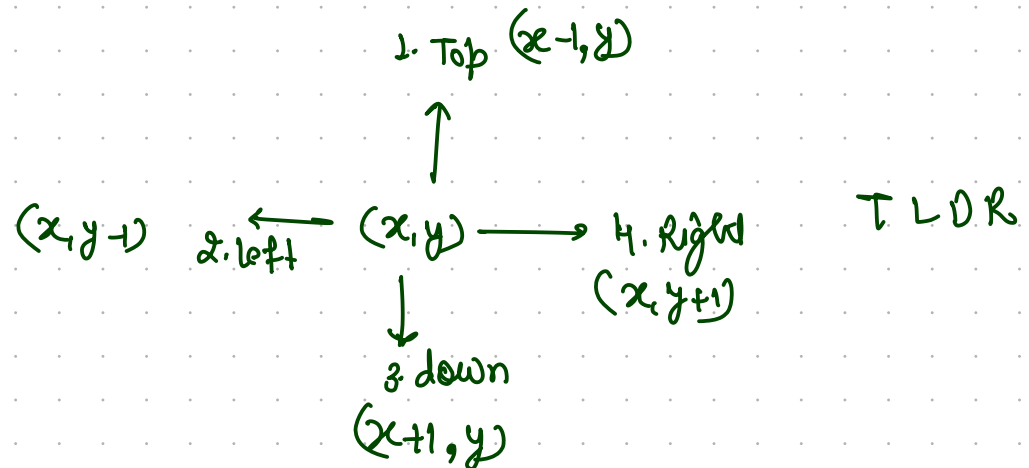 1. Top (x-1, y)
(x, y-1) 2. left (x, y) 4. Right T L D R
(x, y+1)
3. down
(x+1, y)